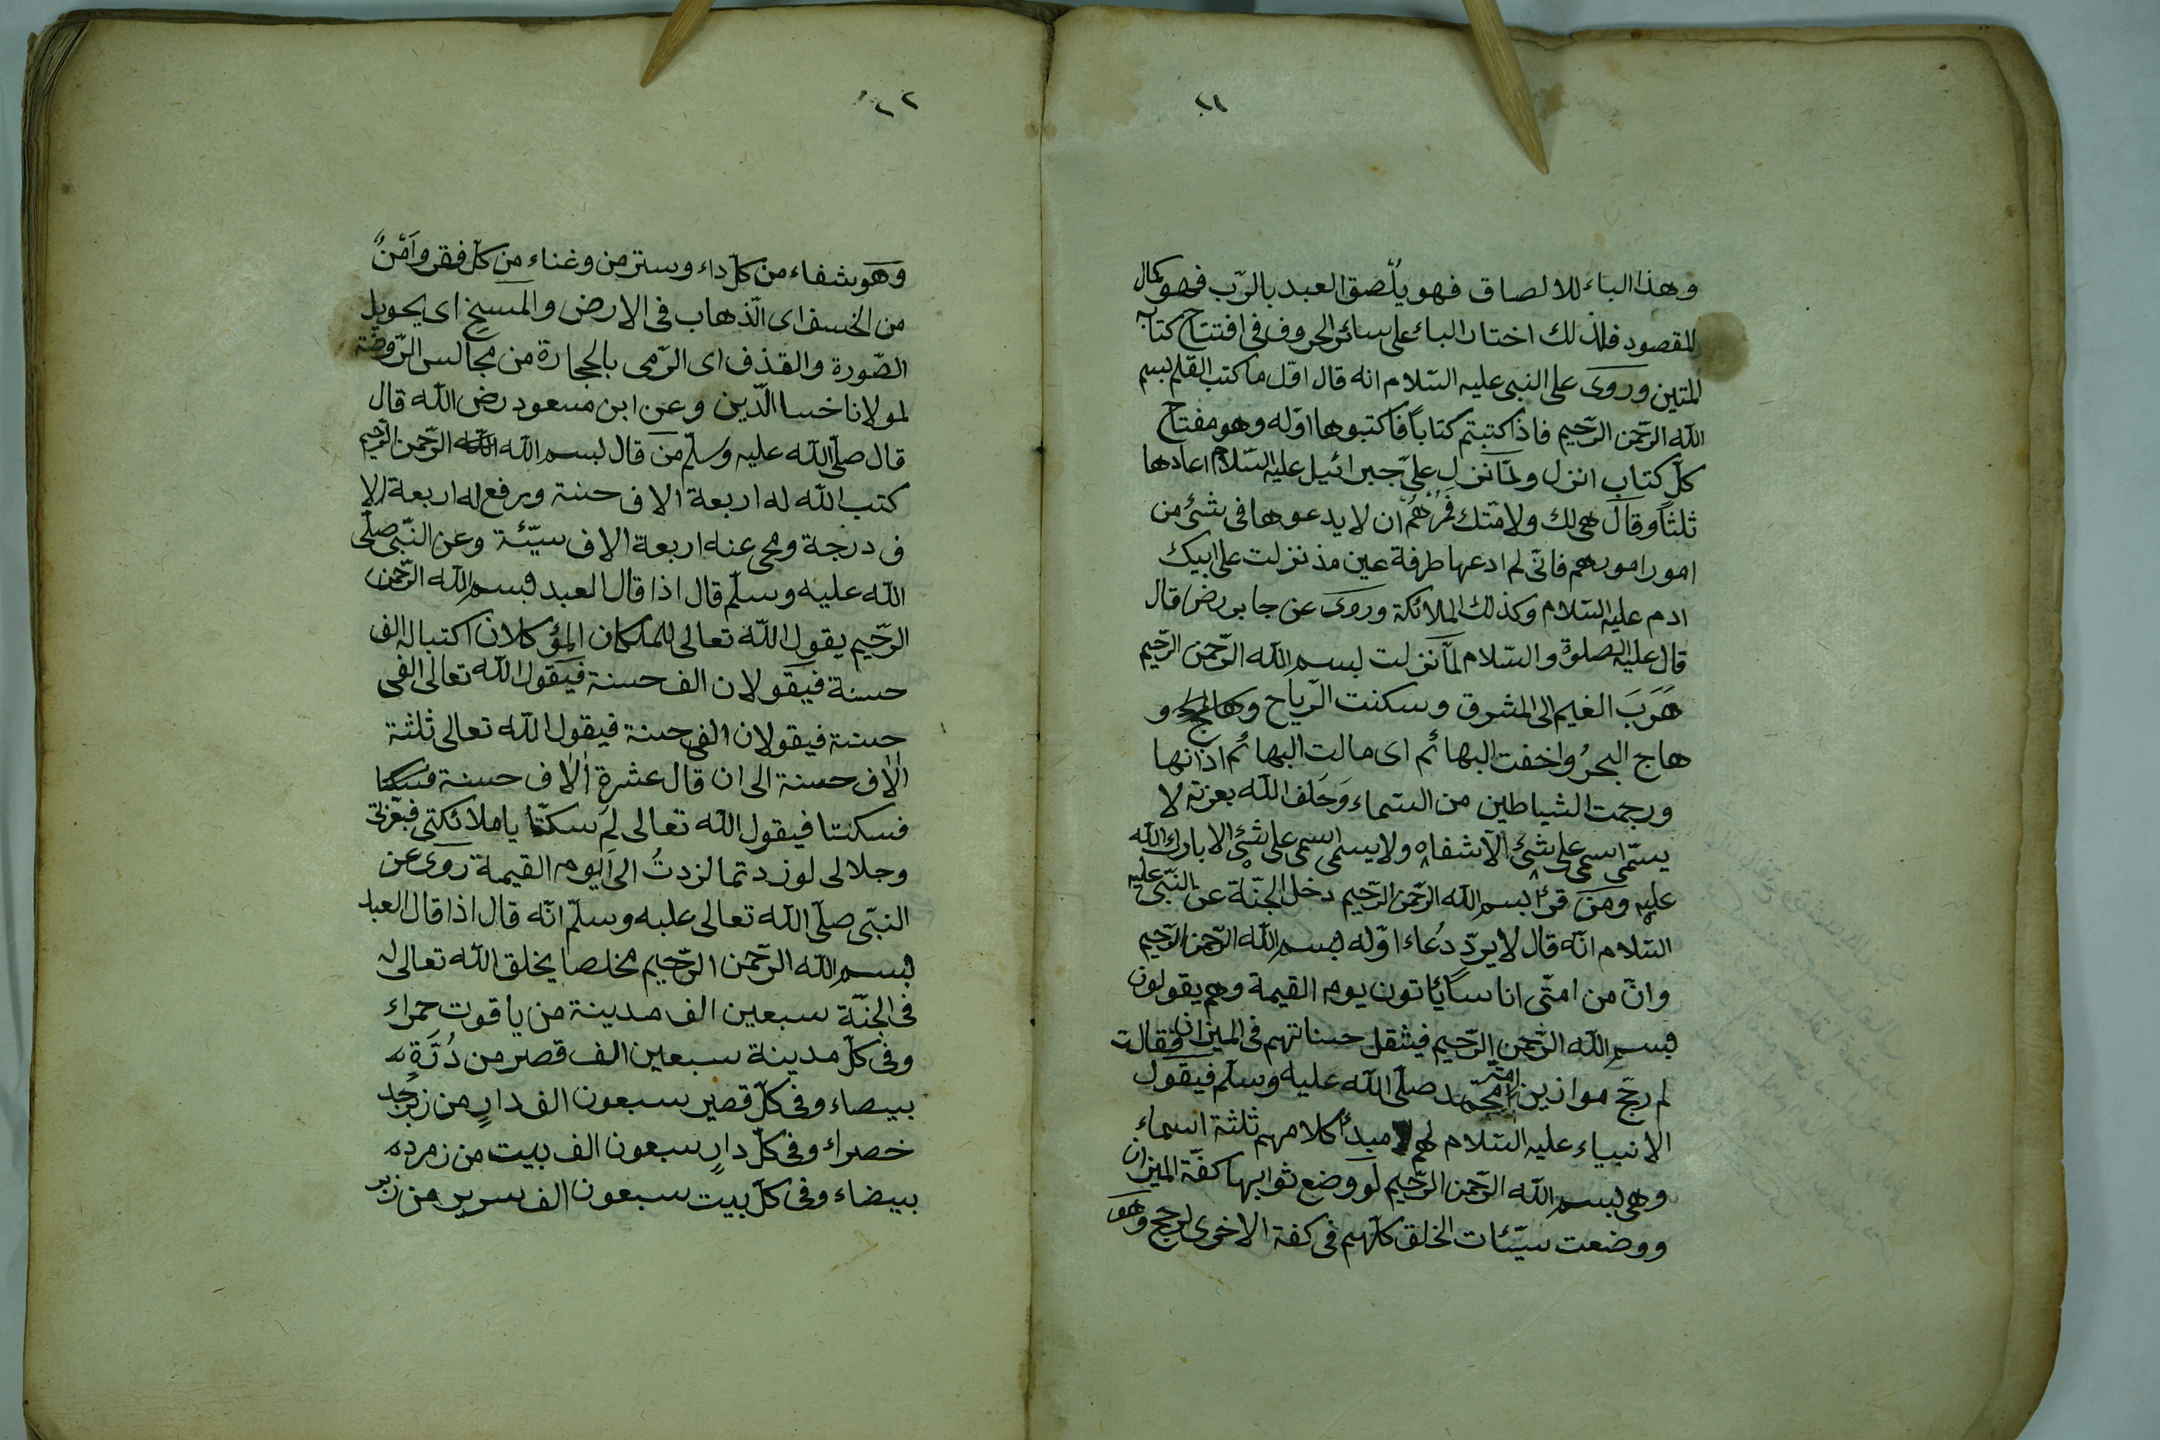 ٢١
وهذا الباء للالصاق فهو يُلْصق العبد بالرّب فهو كمال
المقصود فلذلك اختار الباء على سائر الحروف فى افتتاح كتابه
المتين وروى على النبى عليه السّلام انه قال اوّل ما كتب القلم بسم
الله الرّحمن الرّحيم فاذا كتبتم كتاباً فاكتبوها اوّله وهو مفتاح
كلّ كتاب انزل ولمّا نزل علىّ جبرائيل عليه السّلام اعادها
ثلثاً وقال هى لك ولامّتك فَمُرْهُمْ ان لا يدعوها فى شئ من
امور امورهم فانّى لم ادعها طرفة عين مذ نزلت على ابيك
ادم عليه السّلام وكذلك الملائكة وروى عن جابر رض قال
قال عليه الصلوة والسّلام لمّا نزلت بسم الله الرّحمن الرّحيم
هَرَبَ الغيم الى المشرق وسكنت الرّياح و
هاج البحرُ واخفت البهائم اى مالت البهائم اذانها
ورجمت الشياطين من السّماء وحَلَف الله بعزته لا
يسمّى اسمى على شئ الّا شفاه ولا يسمى اسمى على شئ الا بارك الله
عليه ومن قرأ بسم الله الرّحمن الرّحيم دخل الجنّة عن النّبىّ عليه
السّلام انّه قال لا يردّ دُعاء اوّله بسم الله الرّحمن الرّحيم
وانّ من امتّى اناسا يأتون يوم القيمة وهم يقولون
بسم الله الرّحمن الرّحيم فيثقل حسناتهم فى الميزان فقالت
لم رجّح موازين امّة محمّد صلّى الله عليه وسلّم فيقول
الانبياء عليه السّلام لهم مبدأ كلامهم ثلثة اسماء
وهى بسم الله الرّحمن الرّحيم لو وضع ثوابها كفّة الميزان
ووضعت سيّئات الخلق كلّهم فى كفة الاخرى لرجح وهو
٢٢
وهو شفاء من كلّ داء وستر من وغناء من كلّ فقر وَاَمْنٌ
من الخسف اى الذّهاب فى الارض والمسخ اى يحويل
الصّورة والقذف اى الرّمى بالحجارة من مجالس الرّوضة
لمولانا خسا الدّين وعن ابن مسعود رض الله قال
قال صلّى الله عليه وسلّم من قال بسم الله الله الرّحمن الرّحيم
كتب الله له اربعة الاف حسنة ورفع له اربعة الا
ف درجة ومحى عنه اربعة الاف سيّئة وعن النّبىّ صلّى
الله عليه وسلّم قال اذا قال العبد بسم الله الرّحمن
الرّحيم يقول الله تعالى للملكان المؤكلان اكتبا له الف
حسنة فيقولان الف حسنة فيقول الله تعالى الفى
حسنة فيقولان الفى حسنة فيقول الله تعالى ثلثة
الٰاف حسنة الى ان قال عشرة الٰاف حسنة فسكتا
فسكتتا فيقول الله تعالى لِمَ سكتّا يا ملائكتى فبعزّتى
وجلالى لو زدتما لزدتُ الى اليوم القيمة روى عن
النبّى صلّى الله تعالى عليه وسلّم انّه قال اذا قال العبد
بسم الله الرّحمن الرّحيم مخلصا يخلق الله تعالى له
فى الجنّة سبعين الف مدينة من ياقوت حمراء
وفى كلّ مدينة سبعين الف قصر من دُرَّةٍ
بيضاء وفى كلّ قصر سبعون الف دارٍ من زبرجد
خضراء وفى كلّ دارٍ سبعون الف بيت من زمرده
بيضاء وفى كلّ بيت سبعون الف سرير من زبر